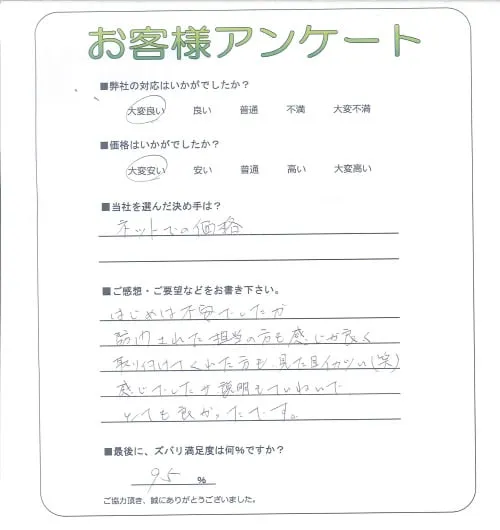 お客様アンケート
■弊社の対応はいかがでしたか？
大変良い 良い 普通 不満 大変不満
■価格はいかがでしたか？
大変安い 安い 普通 高い 大変高い
■当社を選んだ決め手は？
ネットでの価格
■ご感想・ご要望などをお書き下さい。
はじめは不安でしたが
訪問された担当の方も感じが良く
取り付けてくれた方も、見た目イカツい(笑)
感じでしたが説明もていねいで
とても良かったです。
■最後に、ズバリ満足度は何％ですか？
95 ％
ご協力頂き、誠にありがとうございました。